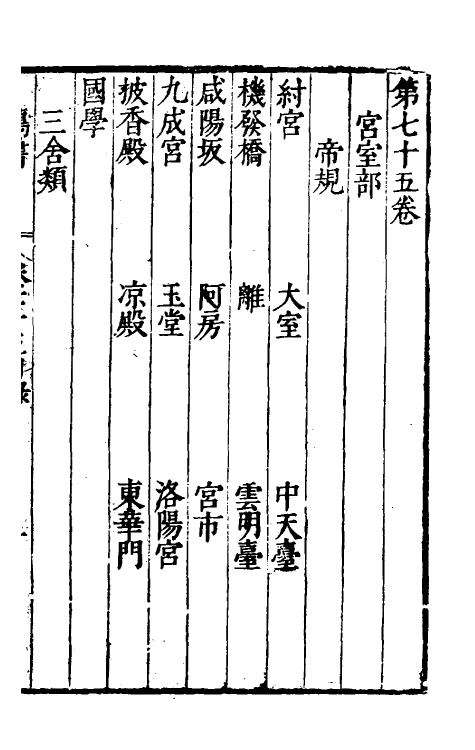 第七十五卷
宮室部
帝規
紂宮　大室　中天臺
機發橋　離　雲明臺
咸陽坂　阿房　宮市
九成宮　玉堂　洛陽宮
披香殿　凉殿　東華門
國學
三舍類